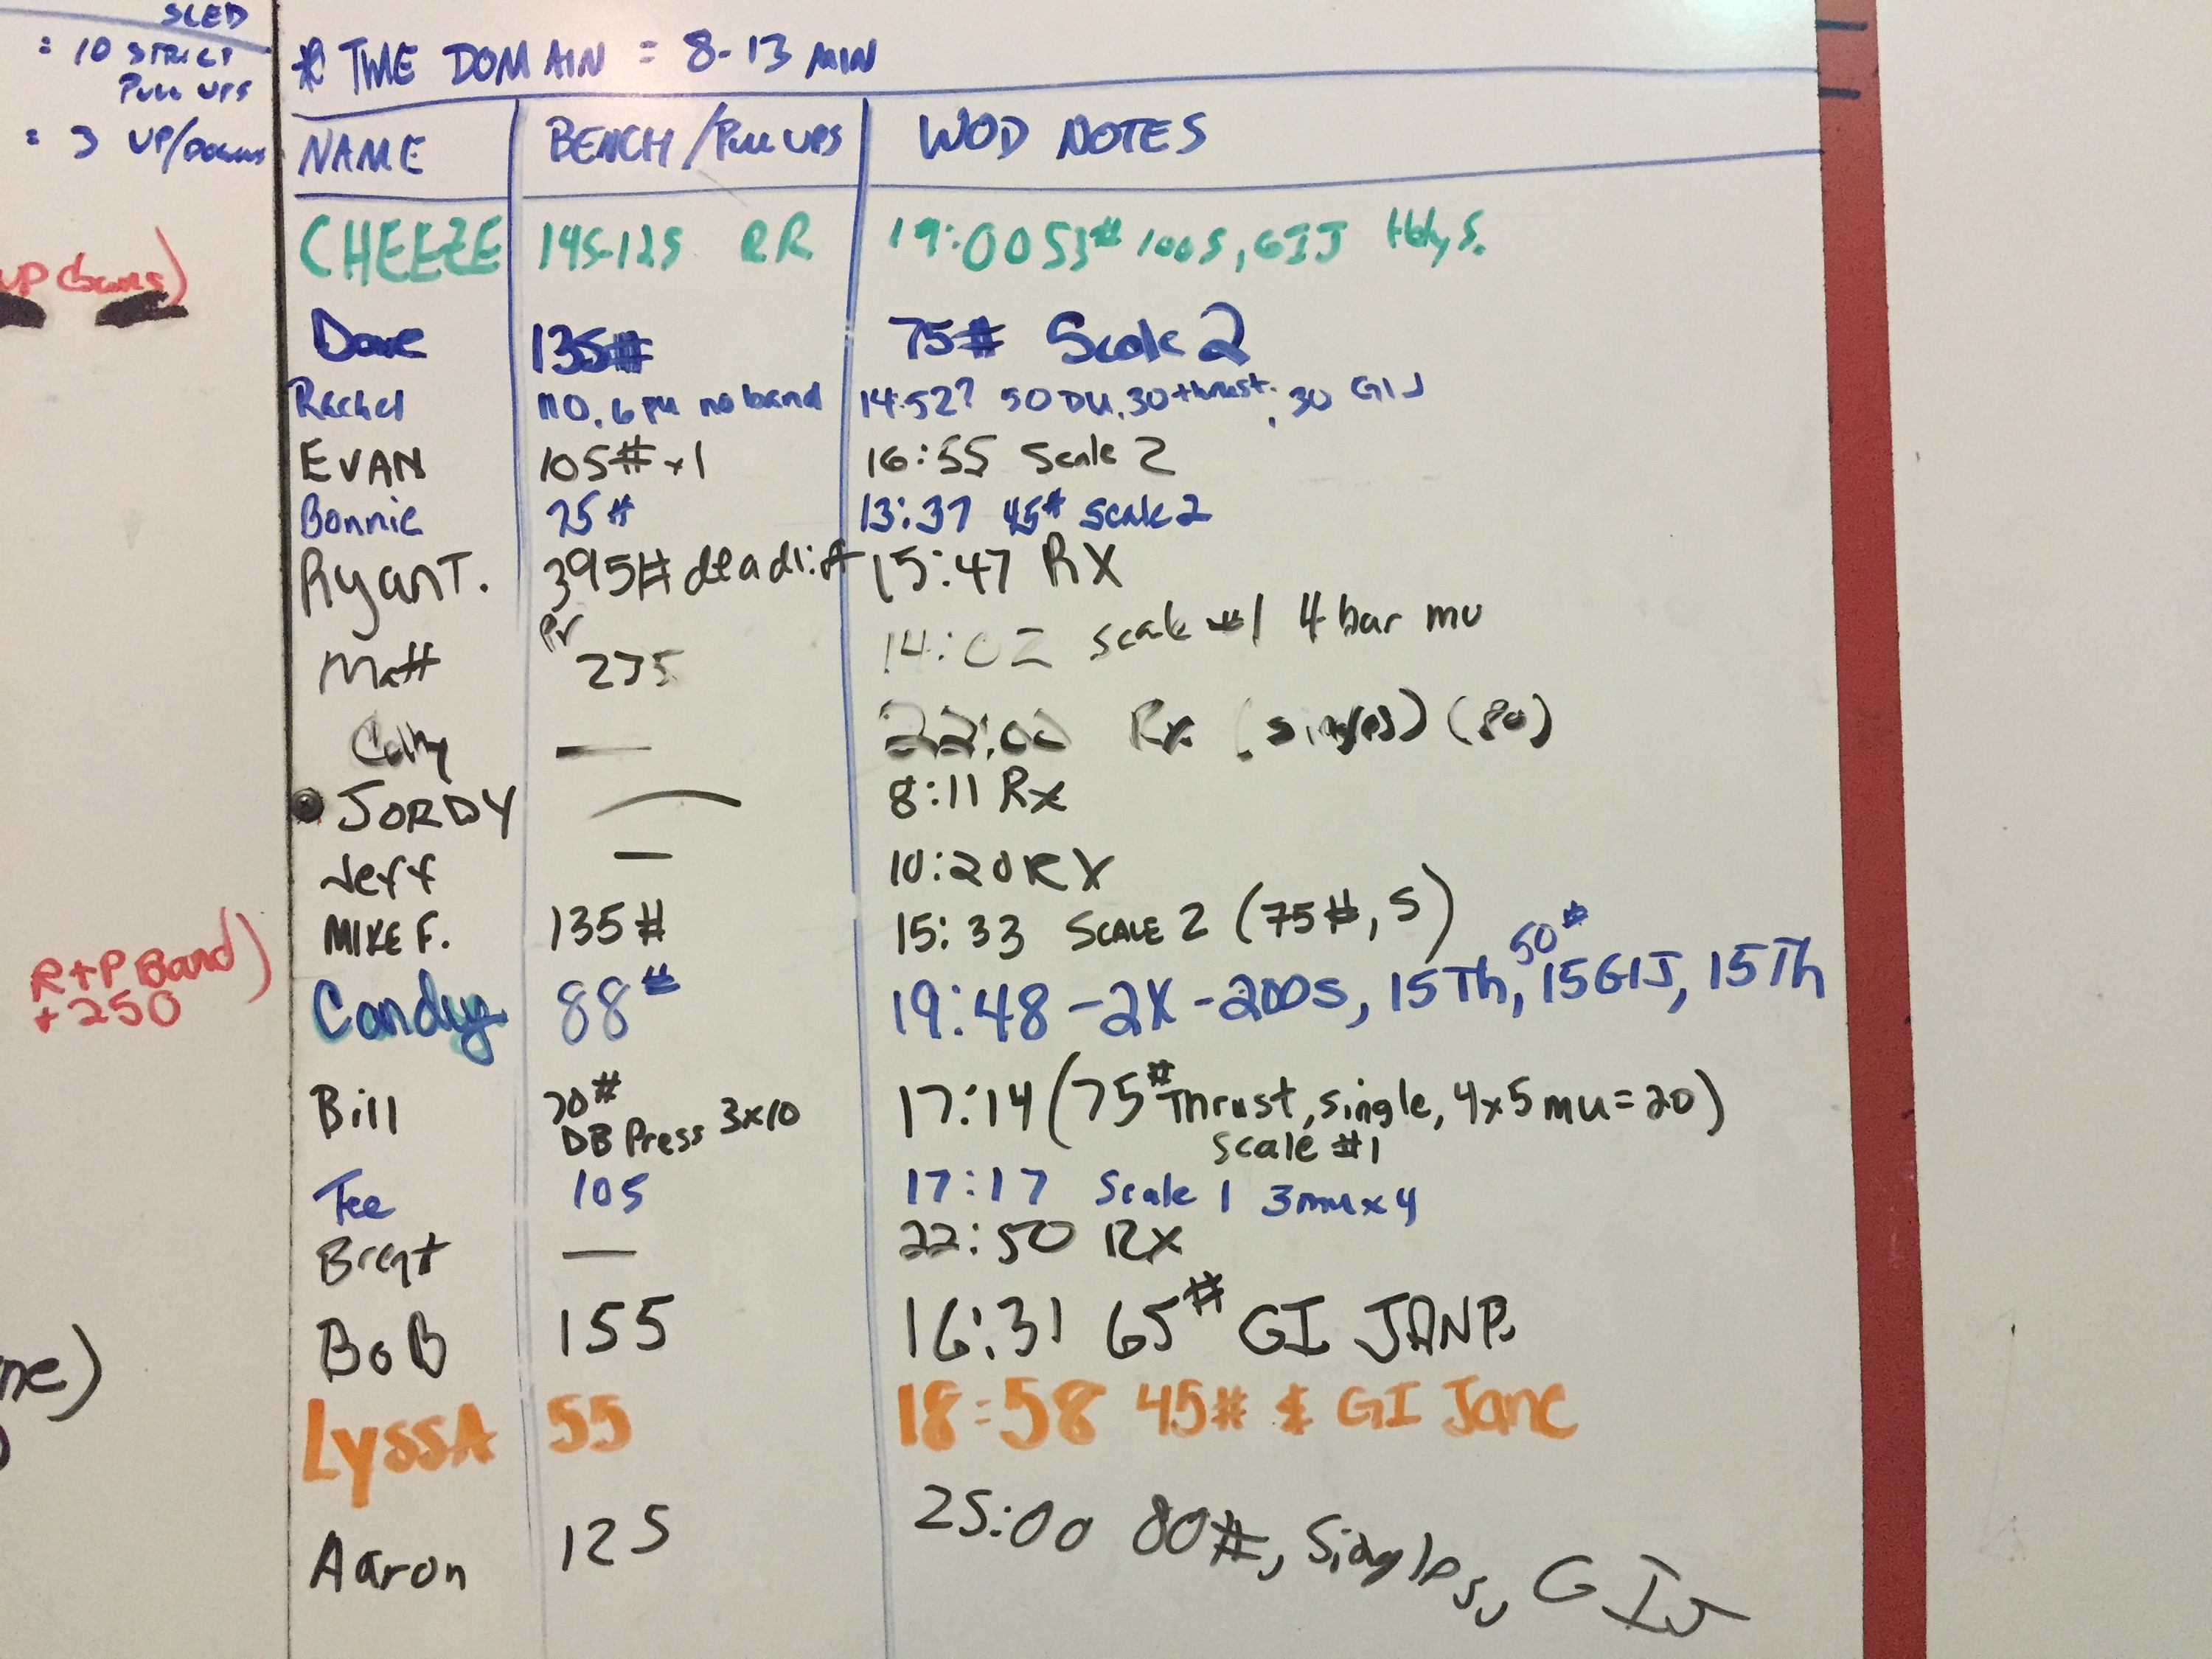 SLED
= 10 STRICT
Pull UPS
= 3 UP/Downs
UP downs)
R+P Band)
+250
ne)
* TIME DOMAIN = 8-13 MIN
NAME BENCH/Pull UPS WOD NOTES
CHEEZE 145-125 RR 19:00 53# 100s, GIJ
Dave 135# 75# Scale 2
Rachel 110, 6 pu no band 14:52? 50 DU, 30 thrust, 30 GIJ
EVAN 105# x1 16:55 Scale 2
Bonnie 75# 13:37 45# Scale 2
Ryan T. 395# deadlift 15:47 RX
Pr
Matt 235 14:02 Scale #1 4 bar mu
— 22:00 Rx (singles) (80)
JORDY — 8:11 Rx
Jeff — 10:20 RX
MIKE F. 135# 15:33 SCALE 2 (75#, S)
50#
Candy 88# 19:48 -2X -200s, 15Th, 15GIJ, 15Th
Bill 70# 17:14 (75# Thrust, single, 4x5 mu=20)
DB Press 3x10 Scale #1
Tee 105 17:17 Scale 1 3mu x 4
Brent — 22:50 RX
BoB 155 16:31 65# GI JANE.
LyssA 55 18:58 45# & GI Jane
Aaron 125 25:00 80#, Singles, GIJ